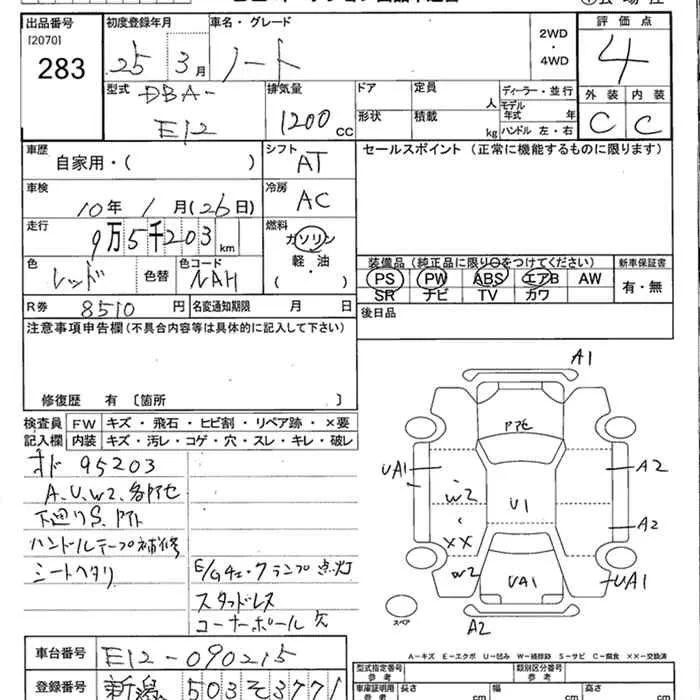 出品番号 初度登録年月 車名・グレード 評価点
[2070]
283
25年 3月 ノート
2WD
・
4WD
4
型式 DBA-
E12
排気量
1200 cc
ドア 定員 人
形状 積載 kg
ディーラー・並行
モデル年式 年
ハンドル 左・右
外装 内装
C C
車歴
自家用・( )
シフト
AT
セールスポイント（正常に機能するものに限ります）
車検
10年 1月(26日)
冷房
AC
走行
9万5千203km
燃料
ガソリン
軽・油
( )
色
レッド 色替
色コード
NAH
装備品（純正品に限り○をつけてください） 新車保証書
PS PW ABS エアB AW
SR ナビ TV カワ
有・無
R券 8510円 名変通知期限 月 日
後日品
注意事項申告欄（不具合内容等は具体的に記入して下さい）
修復歴 有 〔箇所 〕
検査員 FW キズ・飛石・ヒビ割・リペア跡・×要
記入欄 内装 キズ・汚レ・コゲ・穴・スレ・キレ・破レ
オド 95203
A、U、W2、各アセ
下廻りS、
ハンドルテープ補修
シートヘタリ
E/Gチェックランプ点灯
スタッドレス
コーナーポール欠
A1
アセ
UA1
W2
U1
A2
A2
××
W2
UA1
UA1
A2
スペア
A－キズ E－エクボ U－凹み W－補修跡 S－サビ C－腐食 ××－交換済
車台番号 E12-090215
登録番号 新潟 503 そ 3771
型式指定番号
参考
類別区分番号
参考
車庫証明用
参考
長さ cm 幅 cm 高さ cm